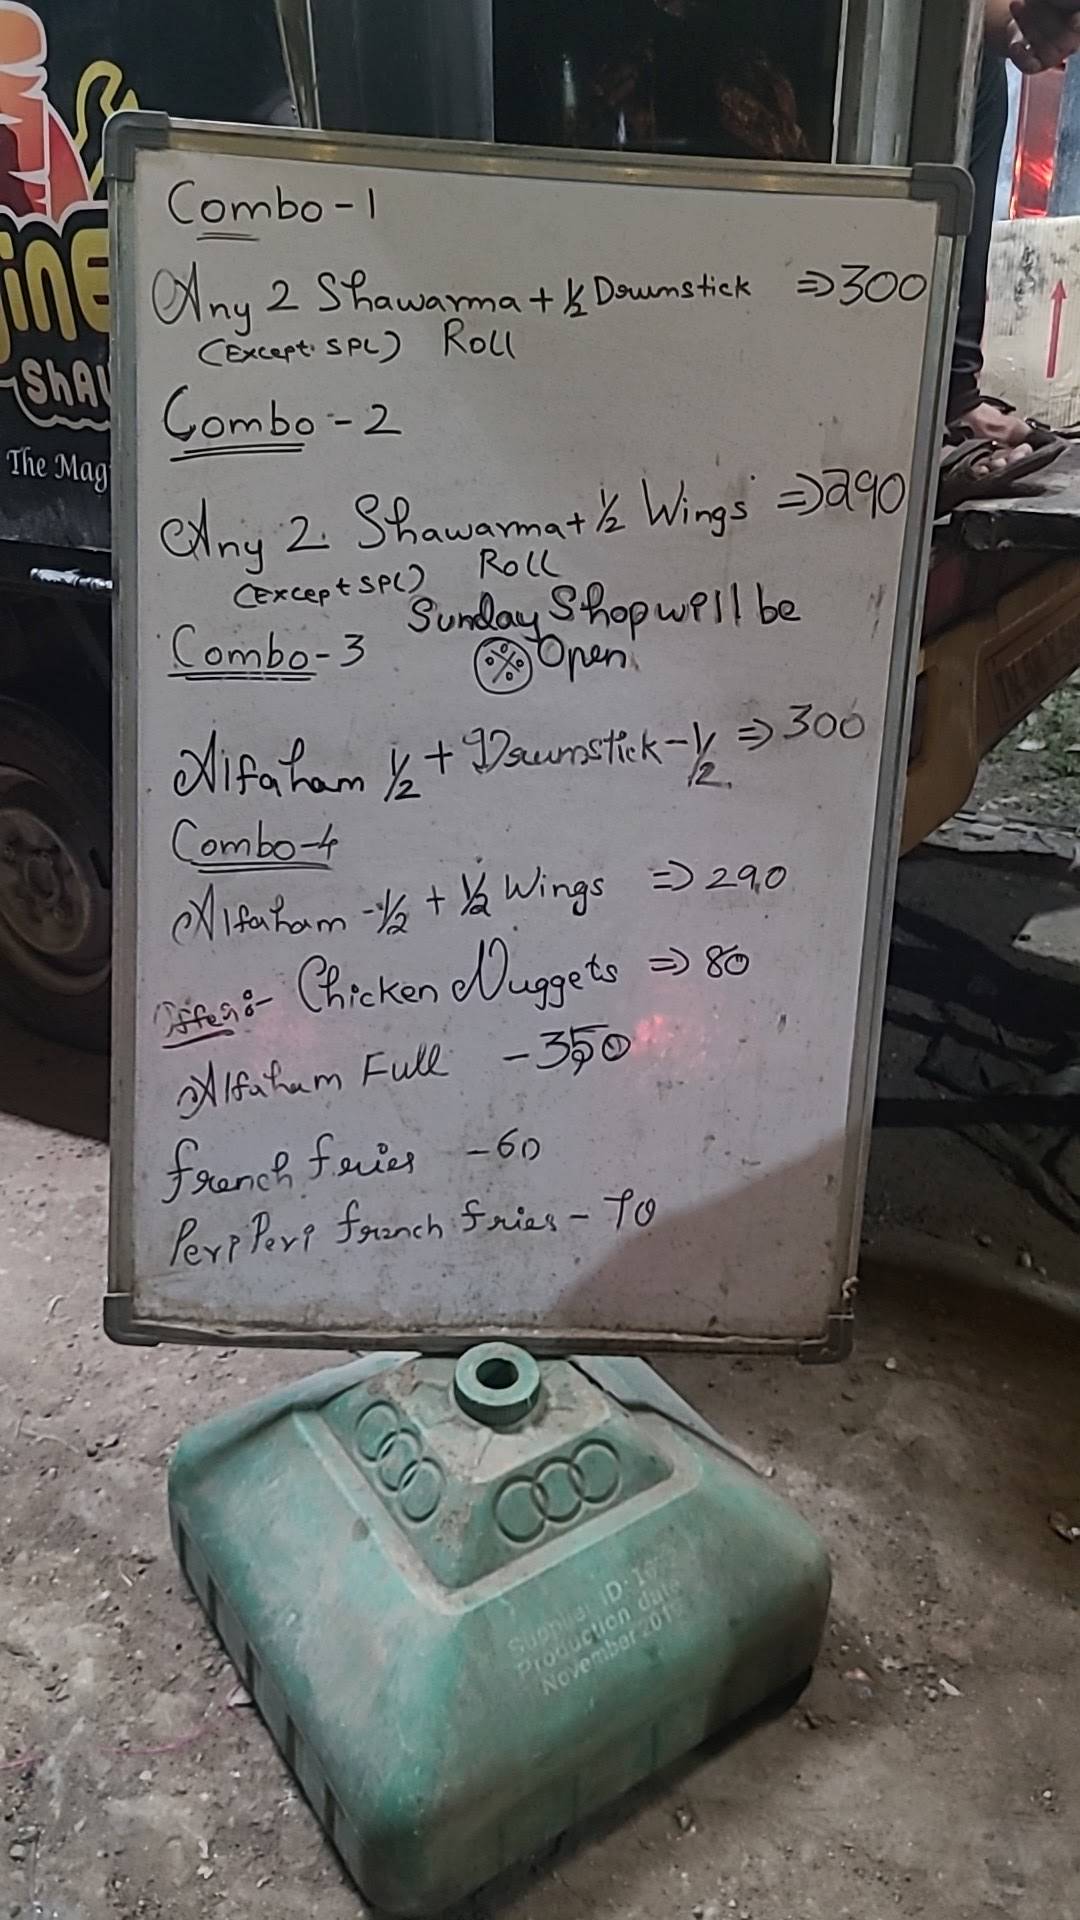 Combo-1
Any 2 Shawarma + 1/2 Drumstick => 300
(Except SPL) Roll
Combo-2
Any 2 Shawarma + 1/2 Wings => 290
(Except SPL) Roll
Sunday Shop will be
Open
Combo-3
Alfaham 1/2 + Drumstick - 1/2 => 300
Combo-4
Alfaham - 1/2 + 1/2 Wings => 290
Offer:- Chicken Nuggets => 80
Alfaham Full - 350
French fries - 60
Peri Peri french fries - 70
The Mag
Supplier ID:
Production date
November